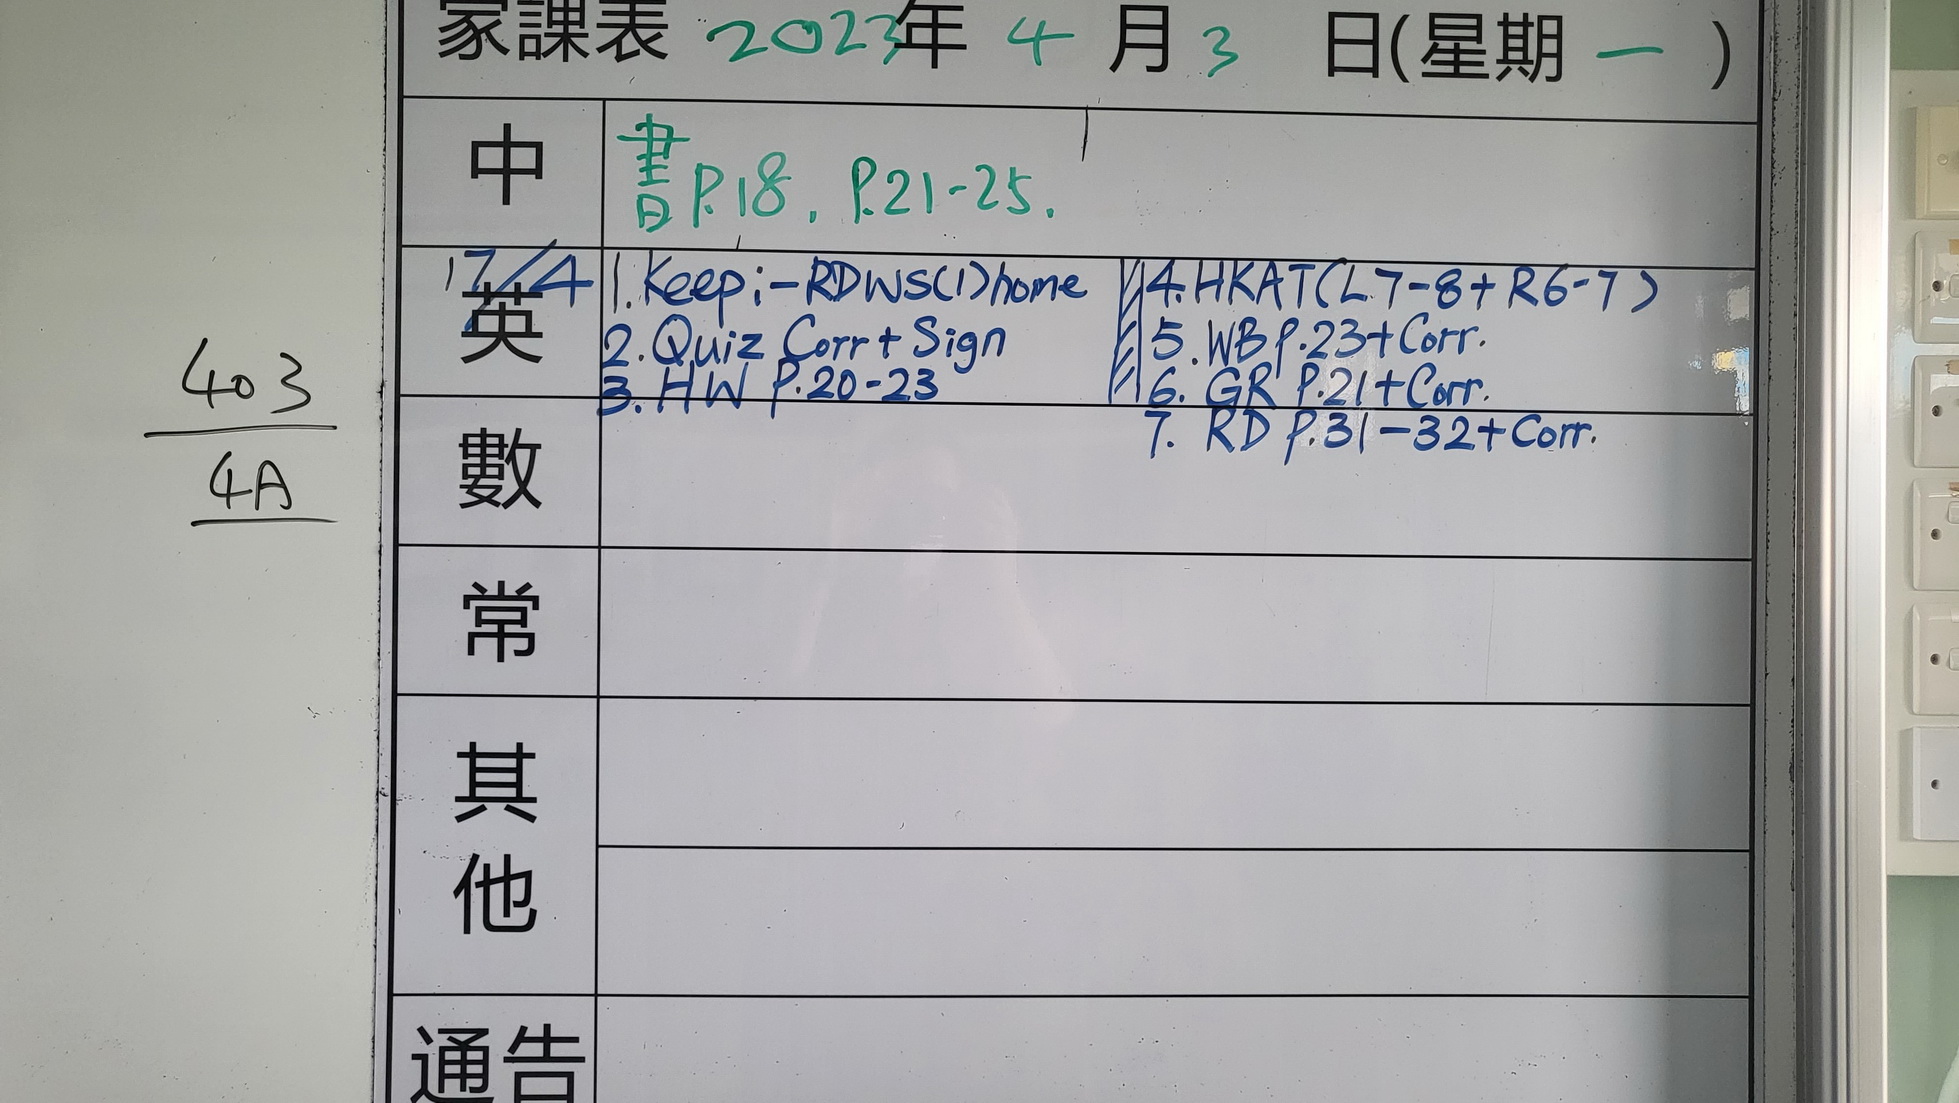 家課表 2023年 4月3日(星期一)
中 書P.18, P.21-25.
英 17/4 1. Keep:-RDWS(1)home
2. Quiz Corr+Sign
3. HW P.20-23
4. HKAT(L7-8+R6-7)
5. WB P.23+Corr.
6. GR P.21+Corr.
7. RD P.31-32+Corr.
403
4A
數
常
其他
通告